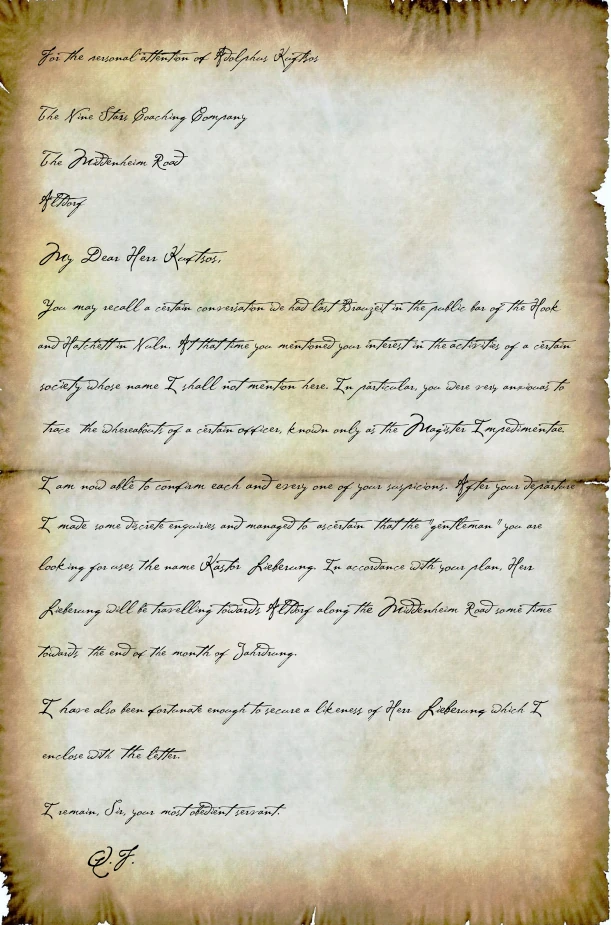 For the personal attention of Adolphus Kuftsos
The Nine Stars Coaching Company
The Middenheim Road
Altdorf
My Dear Herr Kuftsos,
You may recall a certain conversation we had last Brauzeit in the public bar of the Hook
and Hatchett in Nuln. At that time you mentioned your interest in the activities of a certain
society whose name I shall not mention here. In particular, you were very anxiouas to
trace the whereabouts of a certain officer, known only as the Magister Impedimentae.
I am now able to confirm each and every one of your suspicions. After your departure
I made some discrete enquiries and managed to ascertain that the "gentleman" you are
looking for uses the name Kastor Lieberung. In accordance with your plan, Herr
Lieberung will be travelling towards Altdorf along the Middenheim Road some time
towards the end of the month of Jahrdrung.
I have also been fortunate enough to secure a likeness of Herr Lieberung which I
enclose with the letter.
I remain, Sir, your most obedient servant.
Q. F.